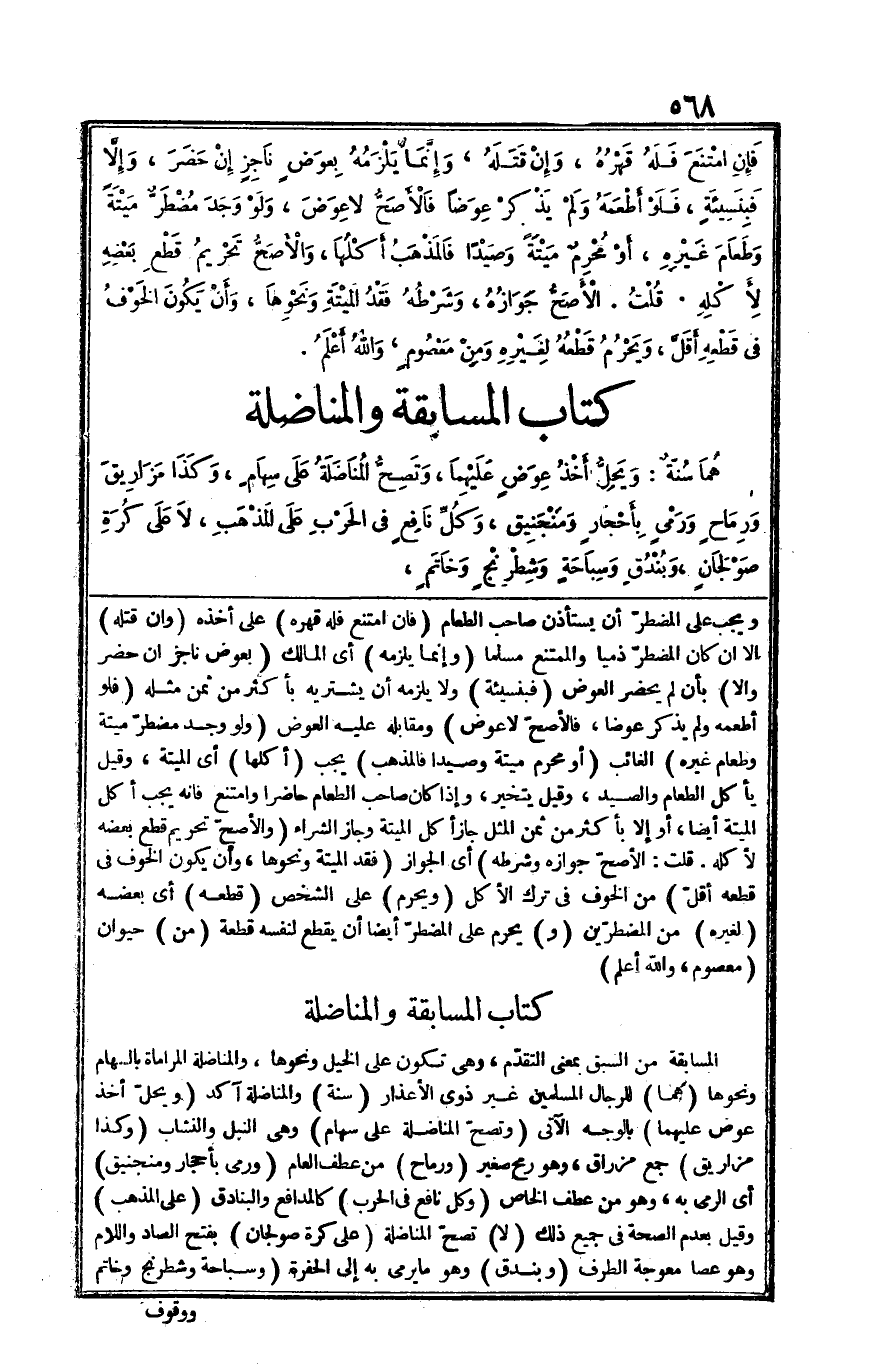 ٥٦٨
فَإِنِ امْتَنَعَ فَـلَهُ قَهْرُهُ ، وَإِنْ قَتَـلَهُ ، وَإِنَّمَا يَلْزَمُهُ بِعِوَضٍ نَاجِزٍ إِنْ حَضَرَ ، وَإِلَّا
فَبِنَسِيئَةٍ ، فَـلَوْ أَطْعَمَهُ وَلَمْ يَذْكُرْ عِوَضًا فَالْأَصَحُّ لَاعِوَضَ ، وَلَوْ وَجَدَ مُضْطَرٌّ مَيْتَةً
وَطَعَامَ غَـيْرِهِ ، أَوْ مُحْرِمٌ مَيْتَةً وَصَيْدًا فَالْمَذْهَبُ أَكْلُهَا ، وَالْأَصَحُّ تَحْرِيمُ قَطْعِ بَعْضِهِ
لِأَكْلِهِ . قُلْتُ . الْأَصَحُّ جَوَازُهُ ، وَشَرْطُهُ فَقْدُ الْمَيْتَةِ وَنَحْوِهَا ، وَأَنْ يَكُونَ الْخَوْفُ
فِى قَطْعِهِ أَقَلَّ ، وَيَحْرُمُ قَطْعُهُ لِغَـيْرِهِ وَمِنْ مَعْصُومٍ ، وَاللهُ أَعْلَمُ .
كتاب المسابقة والمناضلة
هُمَا سُنَّةٌ : وَيَحِلُّ أَخْذُ عِوَضٍ عَلَيْهِمَا ، وَتَصِحُّ الْمُنَاضَلَةُ عَلَى سِهَامٍ ، وَكَذَا مَزَارِيقَ
وَرِمَاحٍ وَرَمْىٍ بِأَحْجَارٍ وَمَنْجَنِيقٍ ، وَكُلِّ نَافِعٍ فِى الْحَرْبِ عَلَى الْمَذْهَبِ ، لَا عَلَى كُرَةِ
صَوْلَجَانٍ ، وَبُنْدُقٍ وَسِبَاحَةٍ وَشِطْرَنْجٍ وَخَاتَمٍ ،
ويجب على المضطرّ أن يستأذن صاحب الطعام (فان امتنع فله قهره) على أخذه (وان قتله)
الا ان كان المضطرّ ذميا والممتنع مسلما (وإنما يلزمه) أى المـالك (بعوض ناجز ان حضر
والا) بأن لم يحضر العوض (فبنسيئة) ولا يلزمه أن يشـتريه بأكثر من ثمن مثـله (فلو
أطعمه ولم يذكر عوضا ، فالأصحّ لاعوض) ومقابله عليـه العوض (ولو وجـد مضطرّ ميتة
وطعام غيره) الغائب (أو محرم ميتة وصـيدا فالمذهب) يجب (أكلها) أى الميتة ، وقيل
يأكل الطعام والصيد ، وقيل يتخير ، وإذا كان صاحب الطعام حاضرا وامتنع فانه يجب أكل
الميتة أيضا ، أو إلا بأكثر من ثمن المثل جاز أكل الميتة وجاز الشراء (والأصحّ تحريم قطع بعضه
لأكله . قلت : الأصحّ جوازه وشرطه) أى الجواز (فقد الميتة ونحوها ، وأن يكون الخوف فى
قطعه أقلّ) من الخوف فى ترك الأكل (ويحرم) على الشخص (قطعـه) أى بعضـه
(لغيره) من المضطرّين (و) يحرم على المضطرّ أيضا أن يقطع لنفسه قطعة (من) حيوان
(معصوم ، والله أعلم)
كتاب المسابقة والمناضلة
المسابقة من السبق بمعنى التقدّم ، وهى تـكون على الخيل ونحوها ، والمناضلة المراماة بالسهام
ونحوها (هما) للرجال المسلمين غـير ذوي الأعذار (سنة) والمناضلة آكد (ويحلّ أخذ
عوض عليهما) بالوجـه الآتى (وتصحّ المناضـلة على سهام) وهى النبل والنشاب (وكذا
مزاريق) جمع مزراق ، وهو رمح صغير (ورماح) من عطف العام (ورمى بأحجار ومنجنيق)
أى الرمى به ، وهو من عطف الخاص (وكل نافع فى الحرب) كالمدافع والبنادق (على المذهب)
وقيل بعدم الصحة فى جميع ذلك (لا) تصحّ المناضلة (على كرة صولجان) بفتح الصاد واللام
وهو عصا معوجة الطرف (وبنـدق) وهو مايرمى به إلى الحفرة (وسـباحة وشطرنج وخاتم
ووقوف